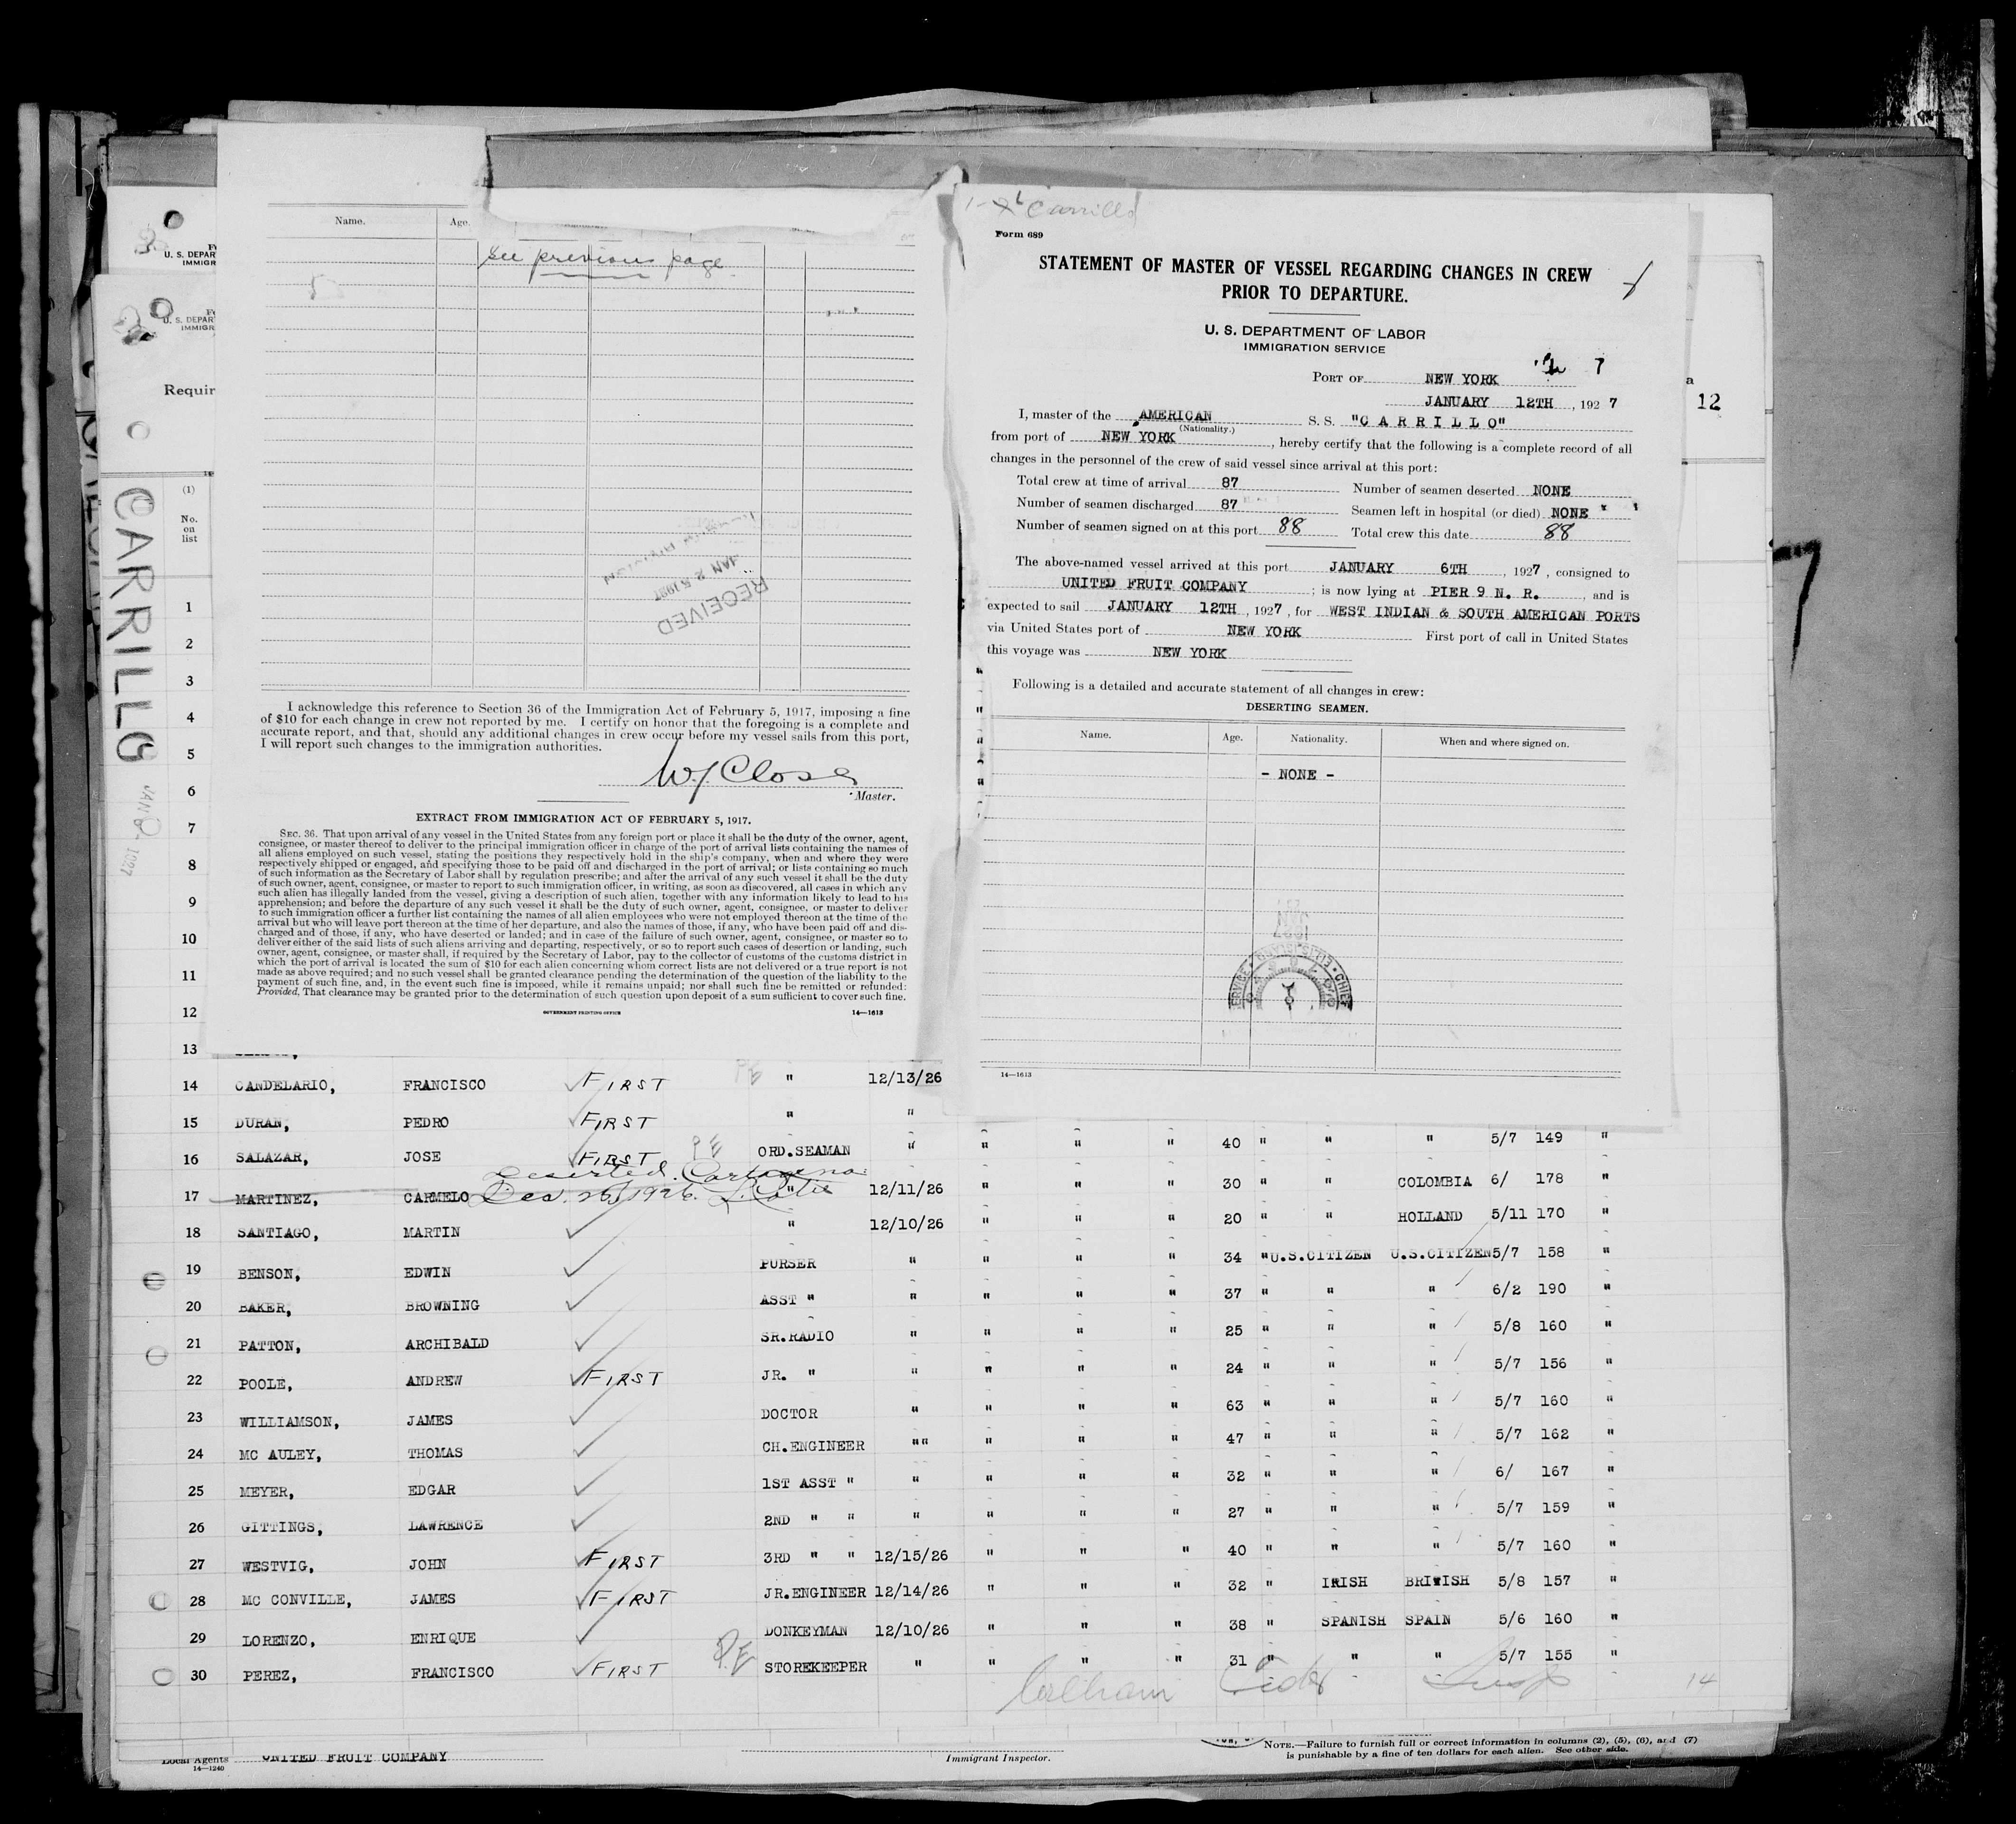 Name. Age.
See previous page
RECEIVED
JAN 25 1927
I acknowledge this reference to Section 36 of the Immigration Act of February 5, 1917, imposing a fine
of $10 for each change in crew not reported by me. I certify on honor that the foregoing is a complete and
accurate report, and that, should any additional changes in crew occur before my vessel sails from this port,
I will report such changes to the immigration authorities.
W. J. Close
Master.
EXTRACT FROM IMMIGRATION ACT OF FEBRUARY 5, 1917.
SEC. 36. That upon arrival of any vessel in the United States from any foreign port or place it shall be the duty of the owner, agent,
consignee, or master thereof to deliver to the principal immigration officer in charge of the port of arrival lists containing the names of
all aliens employed on such vessel, stating the positions they respectively hold in the ship's company, when and where they were
respectively shipped or engaged, and specifying those to be paid off and discharged in the port of arrival; or lists containing so much
of such information as the Secretary of Labor shall by regulation prescribe; and after the arrival of any such vessel it shall be the duty
of such owner, agent, consignee, or master to report to such immigration officer, in writing, as soon as discovered, all cases in which any
such alien has illegally landed from the vessel, giving a description of such alien, together with any information likely to lead to his
apprehension; and before the departure of any such vessel it shall be the duty of such owner, agent, consignee, or master to deliver
to such immigration officer a further list containing the names of all alien employees who were not employed thereon at the time of the
arrival but who will leave port thereon at the time of her departure, and also the names of those, if any, who have been paid off and dis-
charged and of those, if any, who have deserted or landed; and in case of the failure of such owner, agent, consignee, or master so to
deliver either of the said lists of such aliens arriving and departing, respectively, or so to report such cases of desertion or landing, such
owner, agent, consignee, or master shall, if required by the Secretary of Labor, pay to the collector of customs of the customs district in
which the port of arrival is located the sum of $10 for each alien concerning whom correct lists are not delivered or a true report is not
made as above required; and no such vessel shall be granted clearance pending the determination of the question of the liability to the
payment of such fine, and, in the event such fine is imposed, while it remains unpaid; nor shall such fine be remitted or refunded:
Provided, That clearance may be granted prior to the determination of such question upon deposit of a sum sufficient to cover such fine.
GOVERNMENT PRINTING OFFICE 14—1613
Carrillo
Form 689
STATEMENT OF MASTER OF VESSEL REGARDING CHANGES IN CREW
PRIOR TO DEPARTURE.
U. S. DEPARTMENT OF LABOR
IMMIGRATION SERVICE
PORT OF NEW YORK
JANUARY 12TH, 1927
I, master of the AMERICAN S. S. "CARRILLO"
(Nationality.)
from port of NEW YORK, hereby certify that the following is a complete record of all
changes in the personnel of the crew of said vessel since arrival at this port:
Total crew at time of arrival 87 Number of seamen deserted NONE
Number of seamen discharged 87 Seamen left in hospital (or died) NONE
Number of seamen signed on at this port 88 Total crew this date 88
The above-named vessel arrived at this port JANUARY 6TH, 1927, consigned to
UNITED FRUIT COMPANY; is now lying at PIER 9 N. R., and is
expected to sail JANUARY 12TH, 1927, for WEST INDIAN & SOUTH AMERICAN PORTS
via United States port of NEW YORK First port of call in United States
this voyage was NEW YORK
Following is a detailed and accurate statement of all changes in crew:
DESERTING SEAMEN.
Name. Age. Nationality. When and where signed on.
- NONE -
14—1613
12
U. S. DEPAR
IMMIGR
U. S. DEPAR
IMMIGR
Requir
CARRILLO
JAN 6 1927
(1)
No.
on
list
1
2
3
4
5
6
7
8
9
10
11
12
13
14 CANDELARIO, FRANCISCO FIRST PE " 12/13/26
15 DURAN, PEDRO FIRST " "
16 SALAZAR, JOSE FIRST PE ORD.SEAMAN " " " " 40 " " " 5/7 149 "
Deserted. Cartagena
17 MARTINEZ, CARMELO Dec. 26, 1926. " 12/11/26 " " " 30 " " COLOMBIA 6/ 178 "
18 SANTIAGO, MARTIN " 12/10/26 " " " 20 " " HOLLAND 5/11 170 "
19 BENSON, EDWIN PURSER " " " " 34 " U.S.CITIZEN U.S.CITIZEN 5/7 158 "
20 BAKER, BROWNING ASST " " " " " 37 " " " 6/2 190 "
21 PATTON, ARCHIBALD SR.RADIO " " " " 25 " " " 5/8 160 "
22 POOLE, ANDREW FIRST JR. " " " " " 24 " " " 5/7 156 "
23 WILLIAMSON, JAMES DOCTOR " " " " 63 " " " 5/7 160 "
24 MC AULEY, THOMAS CH.ENGINEER "" " " " 47 " " " 5/7 162 "
25 MEYER, EDGAR 1ST ASST " " " " " 32 " " " 6/ 167 "
26 GITTINGS, LAWRENCE 2ND " " " " " " 27 " " " 5/7 159 "
27 WESTVIG, JOHN FIRST 3RD " " 12/15/26 " " " 40 " " " 5/7 160 "
28 MC CONVILLE, JAMES FIRST JR.ENGINEER 12/14/26 " " " 32 " IRISH BRITISH 5/8 157 "
29 LORENZO, ENRIQUE DONKEYMAN 12/10/26 " " " 38 " SPANISH SPAIN 5/6 160 "
30 PEREZ, FRANCISCO FIRST P.E STOREKEEPER " " " " 31 " " " 5/7 155 "
14
Local Agents UNITED FRUIT COMPANY Immigrant Inspector.
14—1240
NOTE.—Failure to furnish full or correct information in columns (2), (5), (6), and (7)
is punishable by a fine of ten dollars for each alien. See other side.